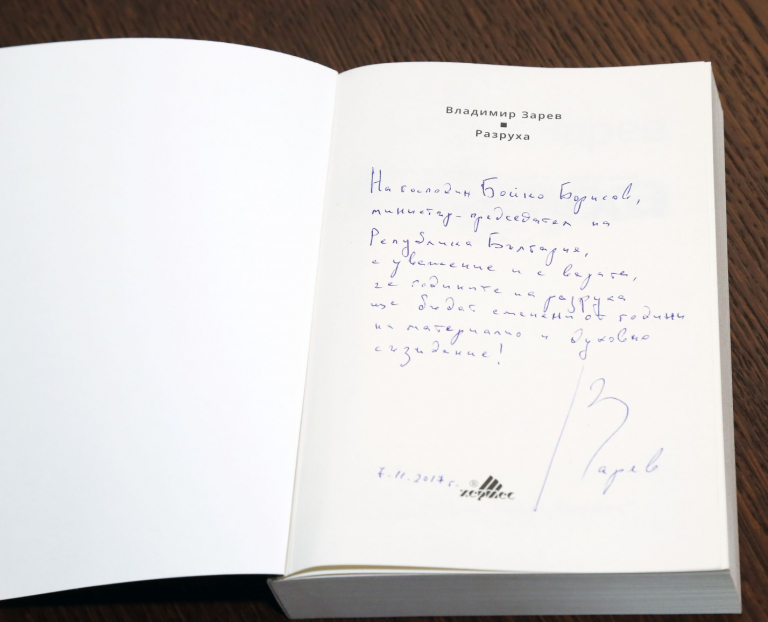 Владимир Зарев
Разруха
На господин Бойко Борисов,
министър-председател на
Република България,
с уважение и с вярата,
че годините на разруха
ще бъдат сменени от години
на материално и духовно
съзидание!
Зарев
7.11.2017 г.
® хермес